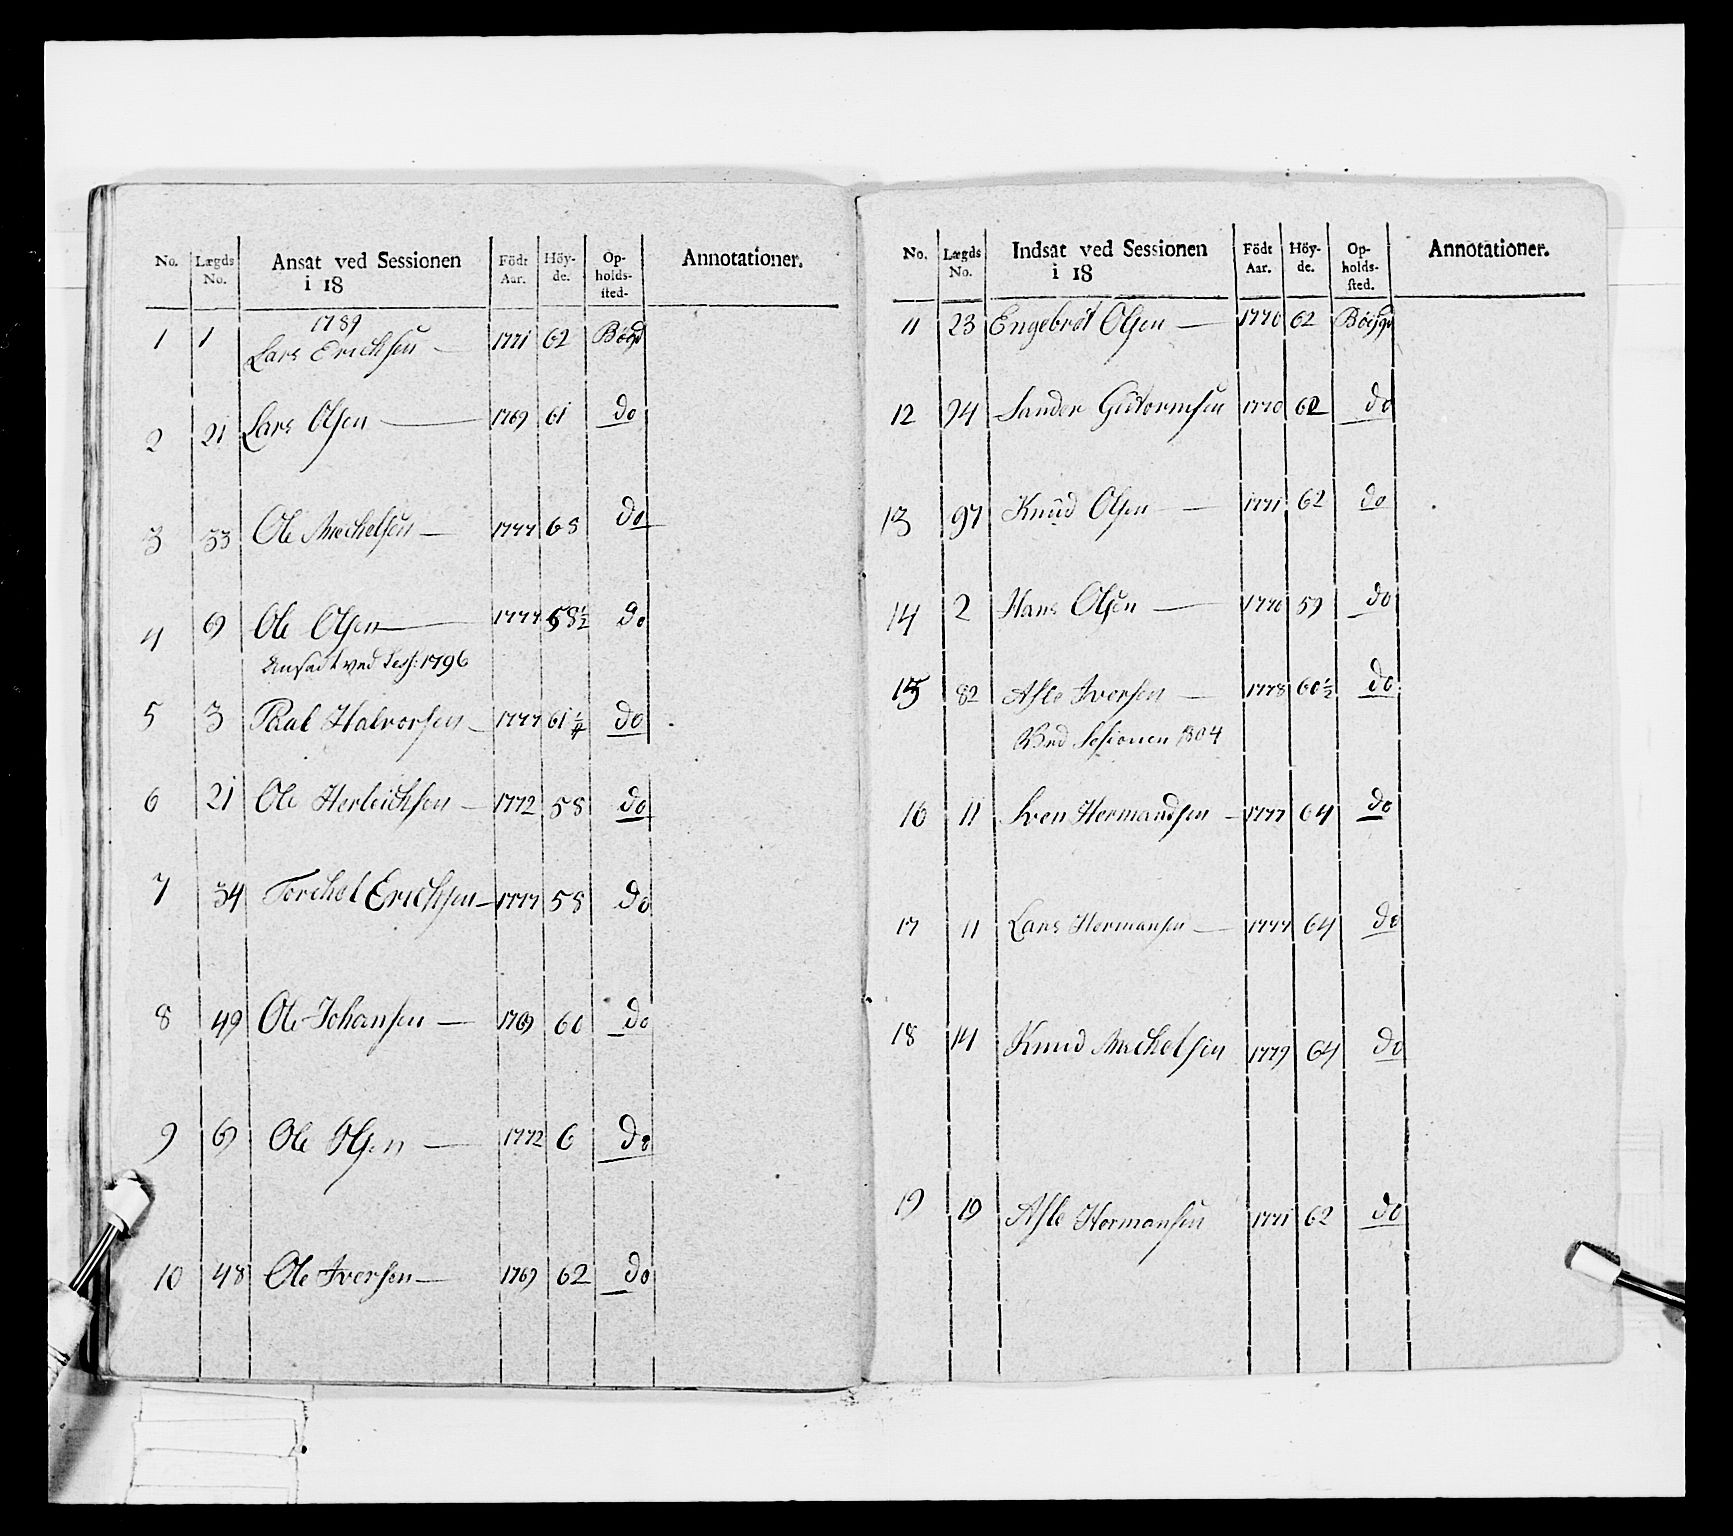 No. Lægds No. Ansat ved Sessionen i 18 Födt Aar. Höyde. Opholdssted. Annotationer.
1789
1 1 Lars Erichsen — 1771 62 Böigd
2 21 Lars Olsen — 1769 61 do
3 33 Ole Michelsen — 1777 63 do
4 69 Ole Olsen — 1777 58½ do
Ansadt ved Sess: 1796
5 3 Paal Halvorsen — 1777 61¼ do
6 21 Ole Herbrichsen — 1772 58 do
7 34 Torchel Erichsen — 1777 58 do
8 49 Ole Johansen — 1769 60 do
9 69 Ole Olsen — 1772 6 do
10 48 Ole Iversen — 1769 62 do
No. Lægds No. Indsat ved Sessionen i 18 Födt Aar. Höyde. Opholdssted. Annotationer.
11 23 Engebret Olsen — 1770 62 Böigd
12 94 Sander Guttormsen 1770 62 do
13 97 Knud Olsen — 1771 62 do
14 2 Hans Olsen — 1770 59 do
15 82 Asle Iversen — 1778 60½ do
Ved Sesionen 1804
16 11 Sven Hermandsen — 1777 64 do
17 11 Lars Hermansen — 1777 64 do
18 14 Knud Michelsen 1779 64 do
19 19 Asle Hermansen 1771 62 do